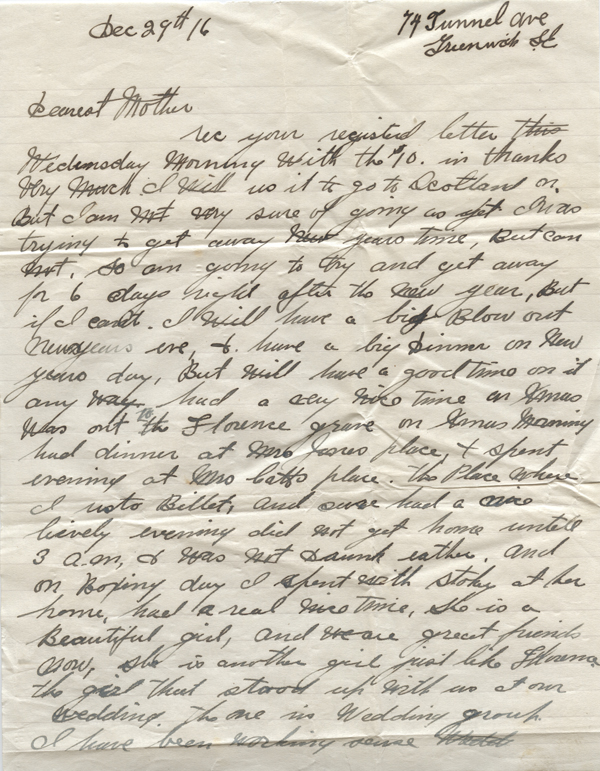 Dec 29th 16
74 Tunnel Ave
Greenwich S.E
Dearest Mother
rec your registed letter this
Wedensday Morning With the $10. in thanks
Very Much I Will us it to go to Scotland on.
But I am Not Very sure of going as yet I Was
trying to get away New years time, But can
Not. So am going to try and get away
for 6 days right after the New year, But
if I cant. I Will have a big Blow out
New years eve, & have a big Dinner on New
years day, But Will have a good time on it
any Way had a very Nice time on Xmas
Was out to the Florence grave on Xmas Morning
had dinner at Mrs Jones place, & spent
evening at Mrs Catts place. The Place Where
I usto Billet, and sure had a nice
lively evening did not get home untill
3 a.m, & Was Not Drunk eather. And
on Boxing day I spent With Stoky at her
home, had a real Nice time, she is a
Beautiful girl, and We are great friends
Now, she is another girl just like Florence
the girl that stood up With us at our
Wedding. The one in Wedding group.
I have been Working sense